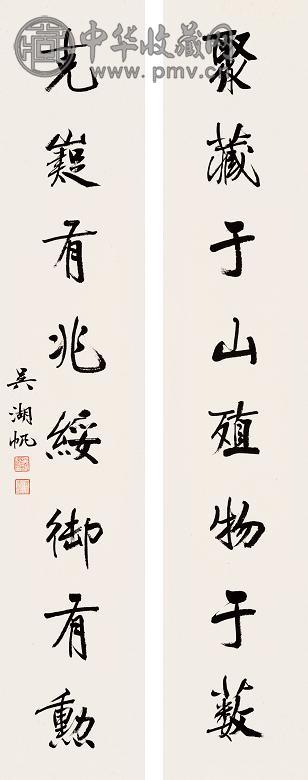 中华收藏网
www.pmv.cn
聚藏于山殖物于藪
克嶷有兆綏御有勳
吳湖帆